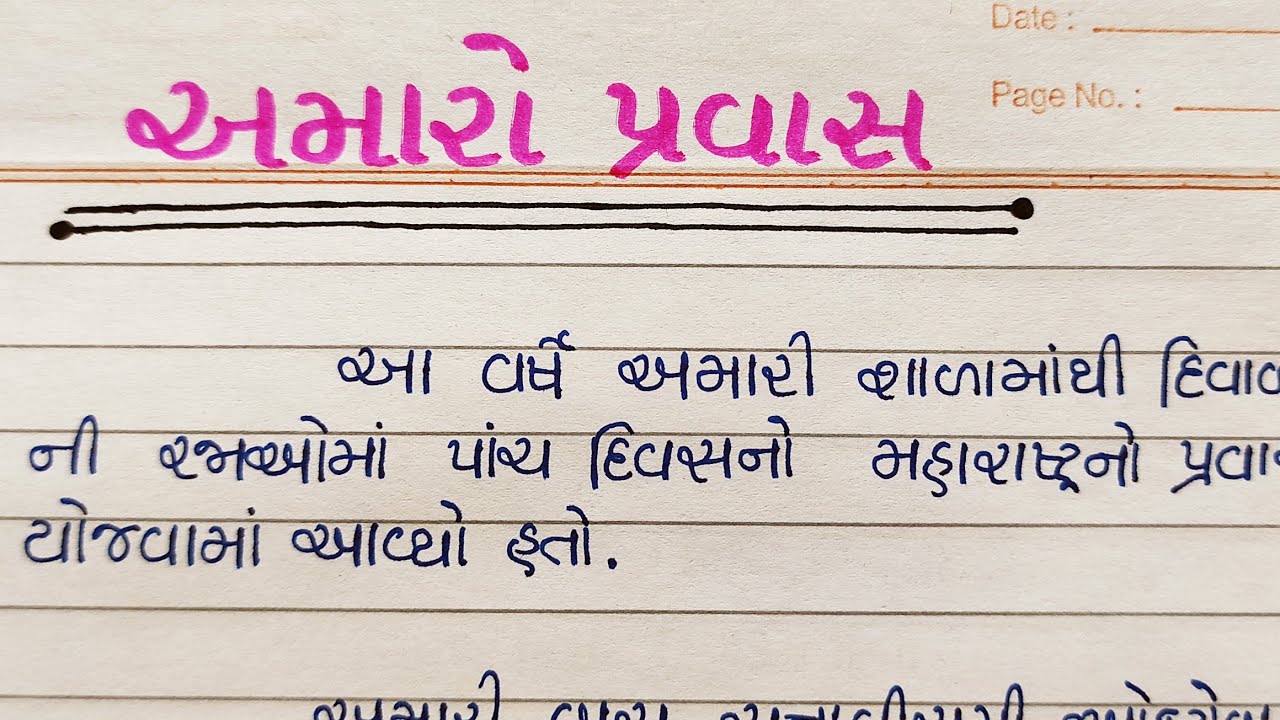 Date :
Page No. :
અમારો પ્રવાસ
આ વર્ષે અમારી શાળામાંથી
ની રજાઓમાં પાંચ દિવસનો મહારાષ્ટ્રનો
યોજવામાં આવ્યો હતો.
અમારી